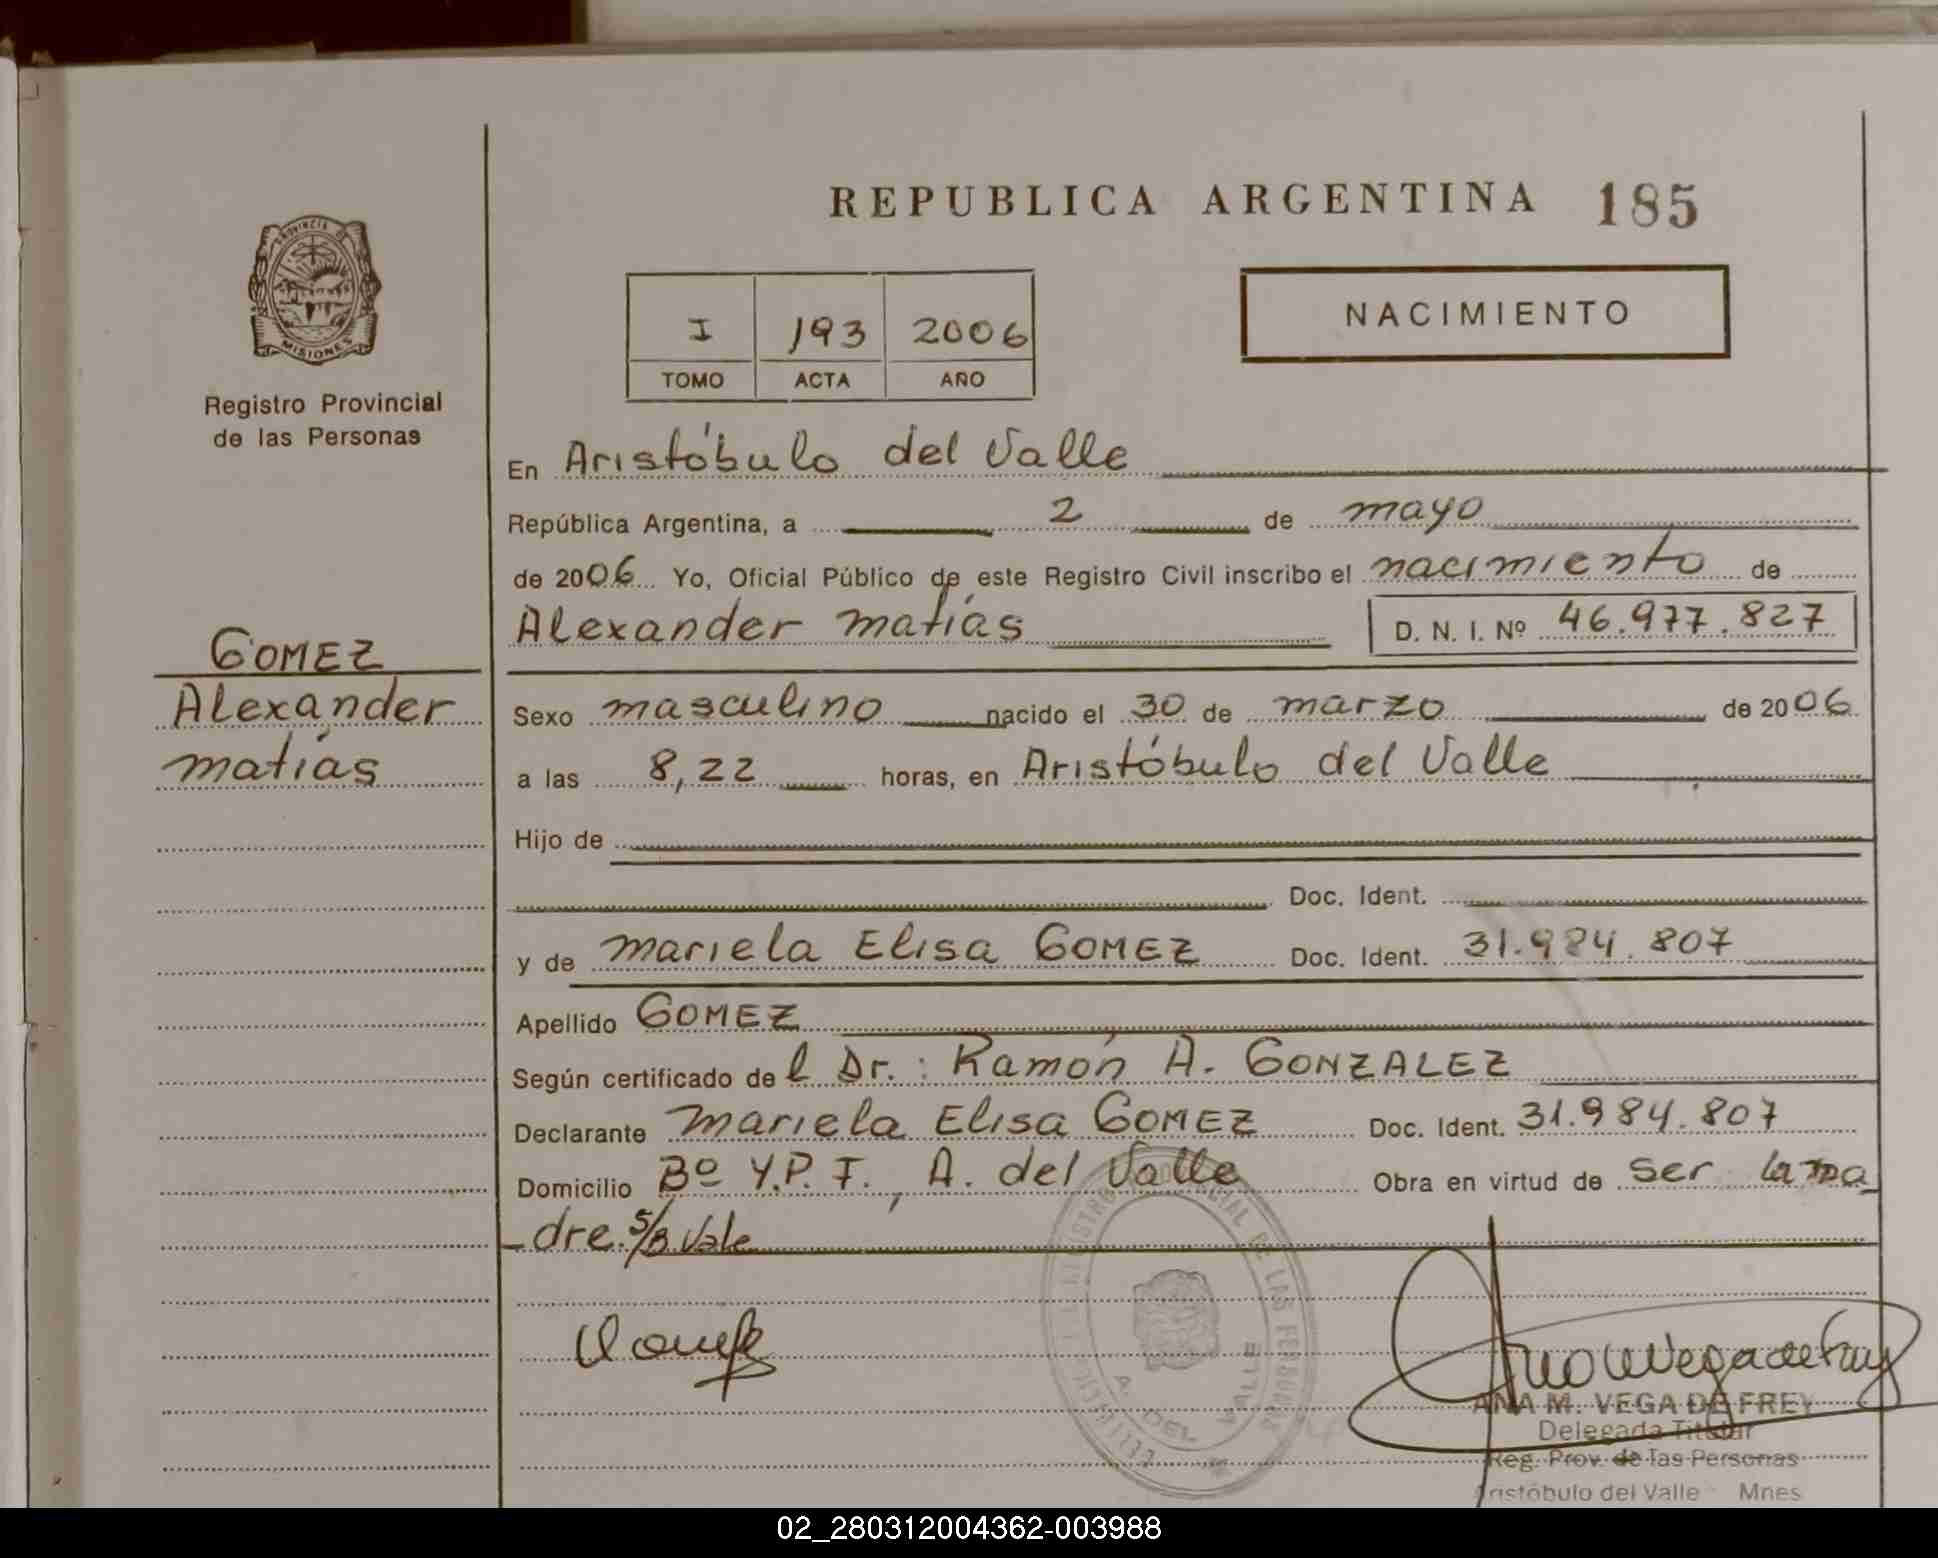 REPUBLICA ARGENTINA 185
PROVINCIA DE
MISIONES
Registro Provincial
de las Personas
I 193 2006
TOMO ACTA AÑO
NACIMIENTO
En Aristóbulo del Valle
República Argentina, a 2 de mayo
de 2006 Yo, Oficial Público de este Registro Civil inscribo el nacimiento de
Alexander Matías D. N. I. Nº 46.977.827
GOMEZ
Alexander
Matías
Sexo masculino nacido el 30 de marzo de 2006
a las 8,22 horas, en Aristóbulo del Valle
Hijo de
Doc. Ident.
y de Mariela Elisa GOMEZ Doc. Ident. 31.984.807
Apellido GOMEZ
Según certificado del Dr.: Ramón A. GONZALEZ
Declarante Mariela Elisa GOMEZ Doc. Ident. 31.984.807
Domicilio Bº Y.P.F., A. del Valle Obra en virtud de ser la ma
dre. S/B Vale
REGISTRO PROVINCIAL DE LAS PERSONAS
A. DEL VALLE
ANA M. VEGA DE FREY
Delegada Titular
Reg. Prov. de las Personas
Aristóbulo del Valle Mnes
02_280312004362-003988